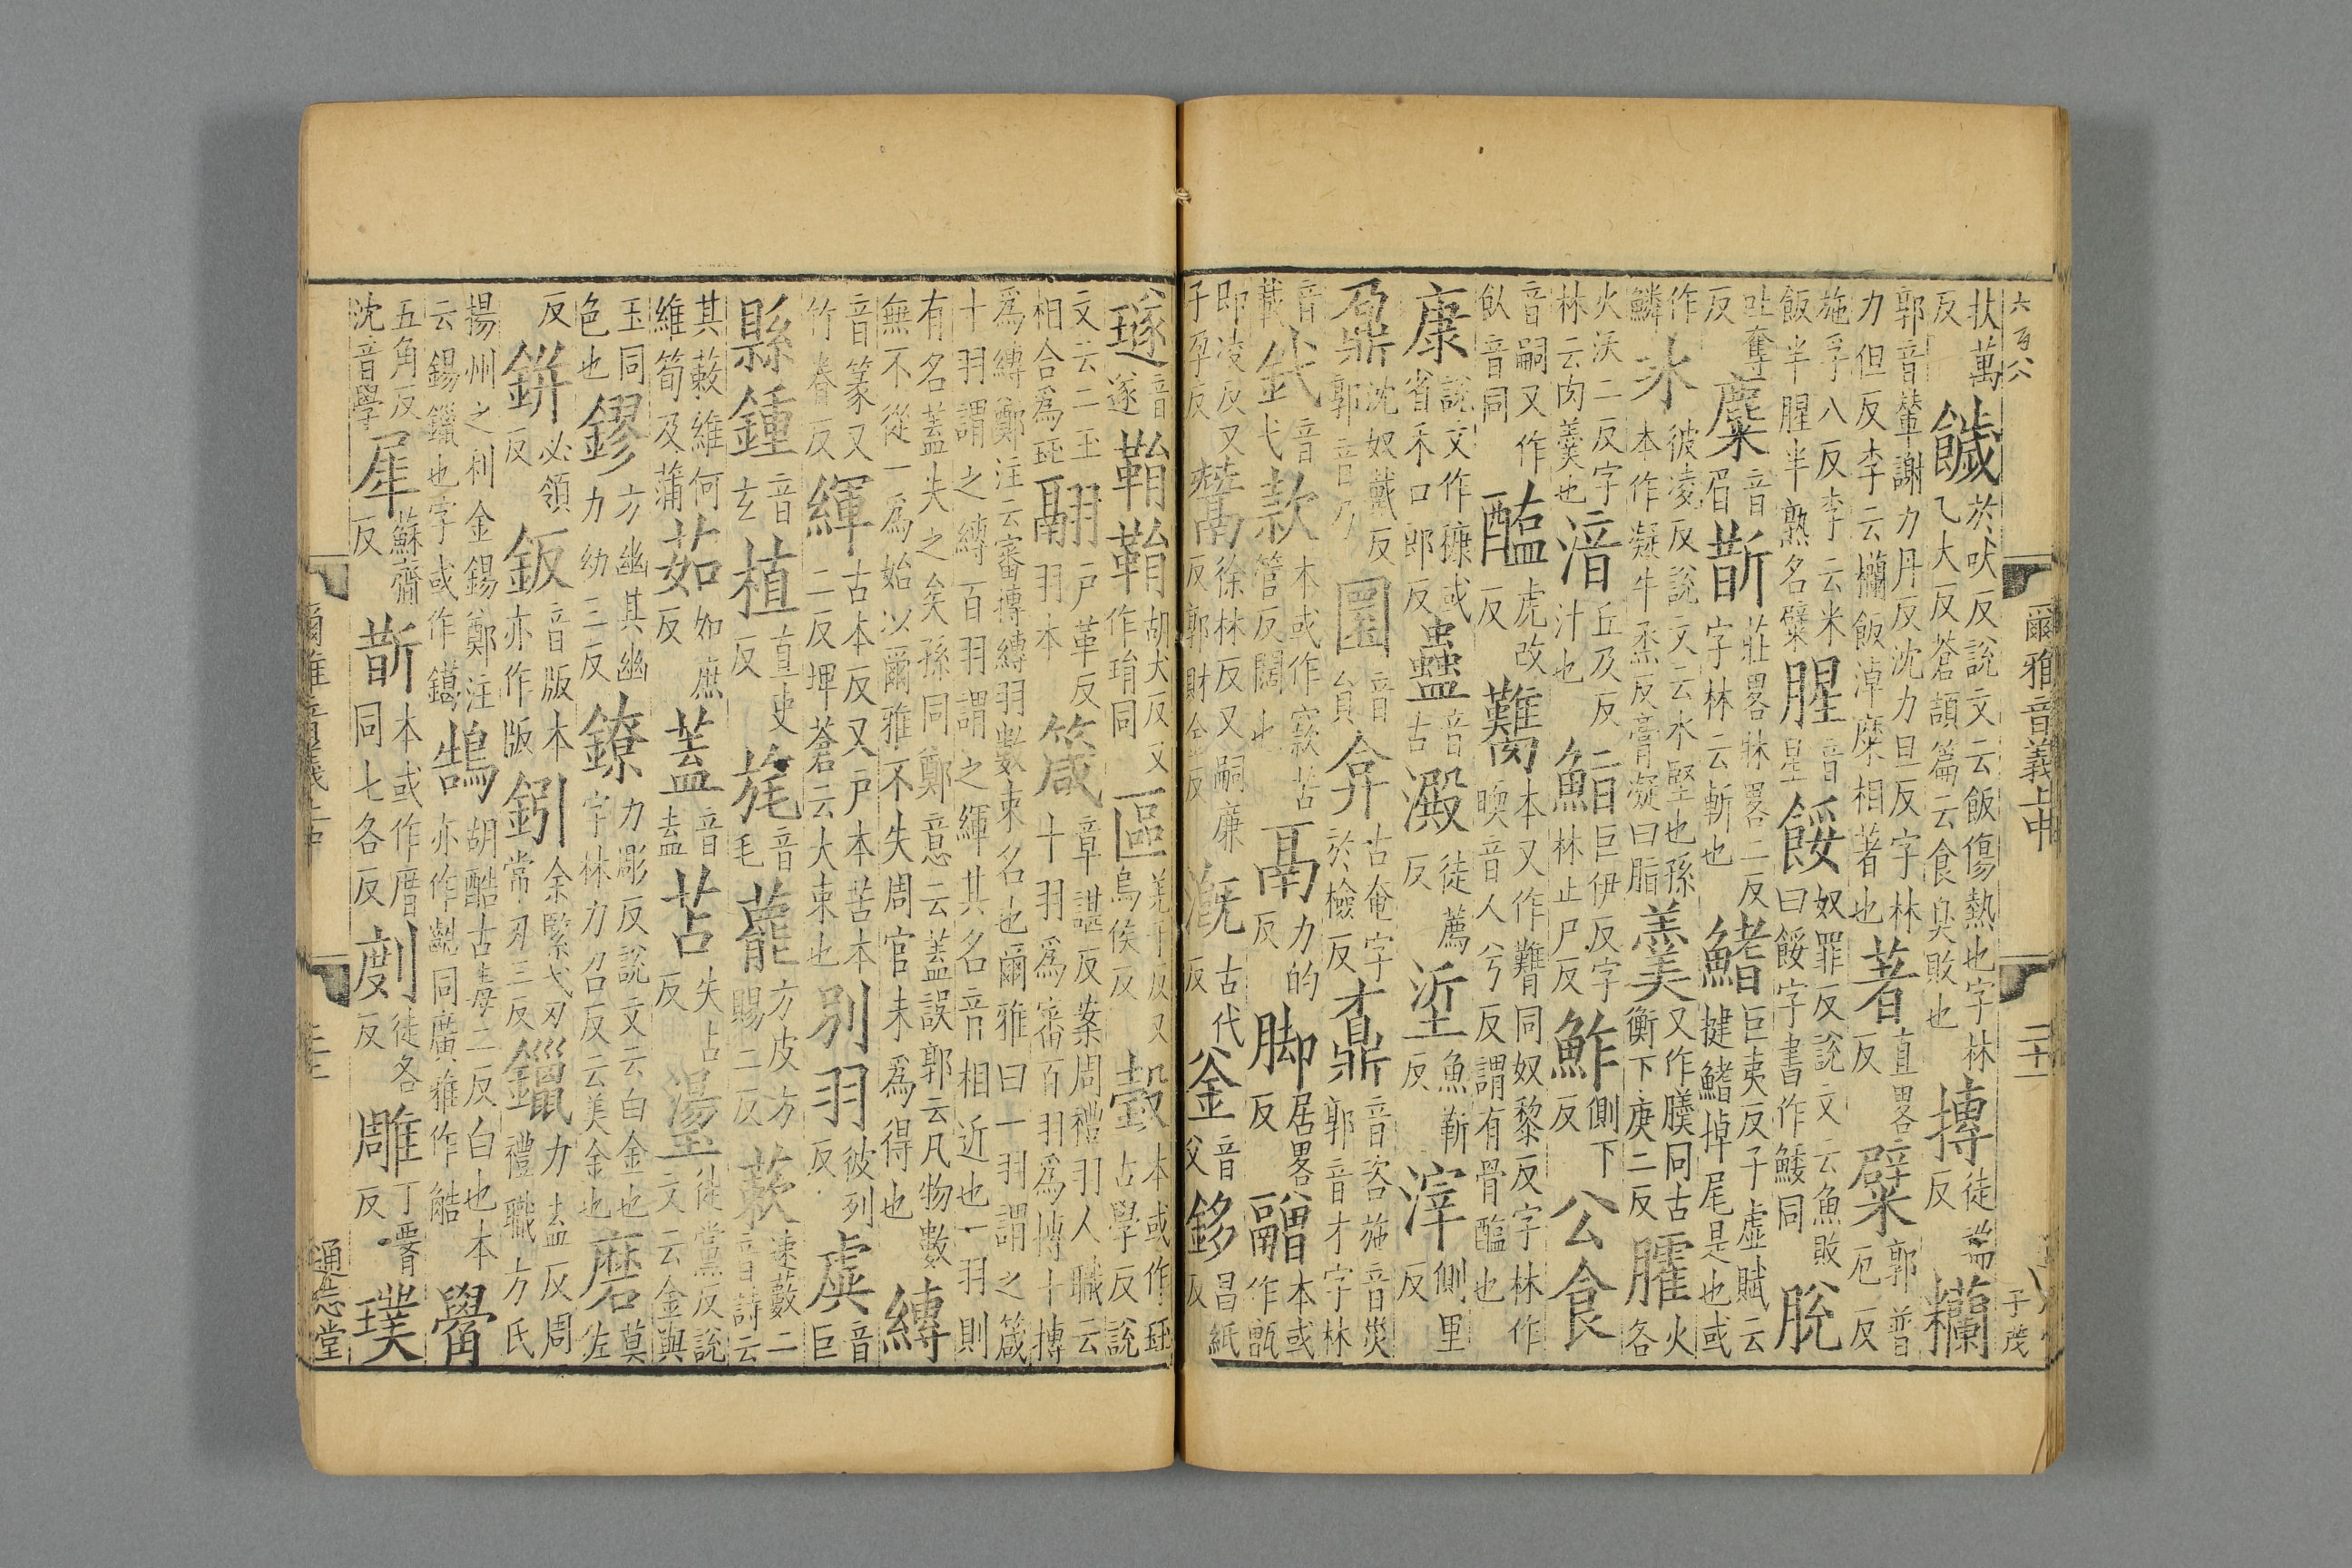 六百六
扶萬
反 餀 於吠反說文云飯傷熱也字林
乙大反蒼頡篇云食臭敗也 摶 徒端
反 糷
郭音輦謝力丹反沈力旦反字林
力但反李云糷飯淖糜相著也 著 直畧
反 檗 郭普
厄反
施孚八反李云米
飯半腥半熟名糪 腥 音
星 餒 奴罪反說文云魚敗
曰餒字書作鯘同 脫
吐奪
反 麋 音
眉 斮 莊畧牀畧二反
字林云斬也 鰭 巨夷反子虛賦云
揵鰭掉尾是也或
作
鱗 冰 彼凌反說文云水堅也孫
本作凝牛烝反膏凝曰脂 羹 又作䐹同古
衡下庚二反 臛 火
各
火沃二反字
林云肉羹也 湆 丘及反
汁也 鮨 巨伊反字
林止尸反 鮓 側下
反 公食
音嗣又作
飤音同 醢 虎改
反 臡 本又作䕼同奴黎反字林作
腝音人兮反謂有骨醢也
康 說文作㝩或
省禾口郎反 蠱 音
古 澱 徒薦
反 垽 魚靳
反 滓 側里
反
鼐 沈奴戴反
郭音乃 圜 音
員 弇 古奄字
於檢反 鼒 音咨施音災
郭音才字林
音
載 釴 音
弋 款 本或作窾苦
管反闊也 鬲 力的
反 脚 居畧
反 䰝 本或
作甑
即凌反又
子孕反 鬵 徐林反又嗣廉
反郭財金反 溉 古代
反 釜 音
父 鉹 昌紙
反
璲 音
遂 鞙鞙 胡犬反又
作琄同 區 羌于反又
烏侯反 瑴 本或作珏
古學反說
文云二玉
相合爲珏 翮 戶革反
羽本 箴 章諶反案周禮羽人職云
十羽爲審百羽爲摶十摶
爲縳鄭注云審摶縳羽數束名也爾雅曰一羽謂之箴
十羽謂之縳百羽謂之緷其名音相近也一羽則
有名蓋失之矣孫同鄭意云蓋誤郭云凡物數
無不從一爲始以爾雅不失周官未爲得也 縳
音篆又
竹眷反 緷 古本反又戶本苦本
二反埤蒼云大束也 別羽 彼列
反 虡 音
巨
縣鍾 音
玄 植 直吏
反 旄 音
毛 藣 方皮方
賜二反 蔌 速藪二
音詩云
其蔌維何
維筍及蒲 茹 如庶
反 蓋 音
盍 苫 失占
反 璗 徒黨反說
文云金與
玉同
色也 鏐 方幽其幽
力幼三反 鐐 力彫反說文云白金也
字林力召反云美金也 磨 莫
佐
反 鉼 必領
反 鈑 音版本
亦作版 鈏 余緊弋刃
常刃三反 鑞 力盍反周
禮職方氏
揚州之利金錫鄭注
云錫鑞也字或作鑞 鵠 胡酷古毒二反白也本
亦作䚛同廣雅作觡 觷
五角反
沈音學 犀 蘇齋
反 斮 本或作厝
同七各反 剫 徒各
反 雕 丁聊
反 璞
爾雅音義上中
二十一
子茂
通志堂